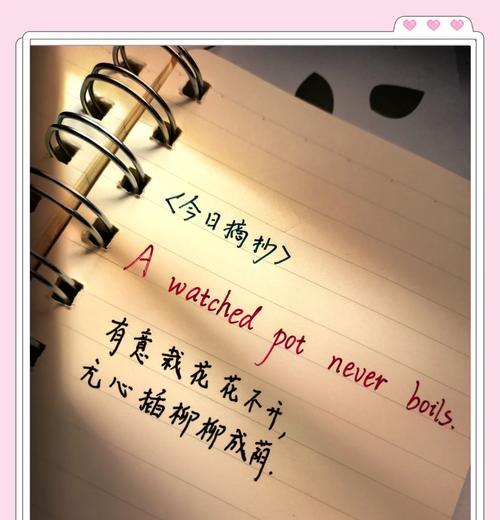 <今日摘抄>
A watched pot never boils.
有意栽花花不开,
无心插柳柳成荫.